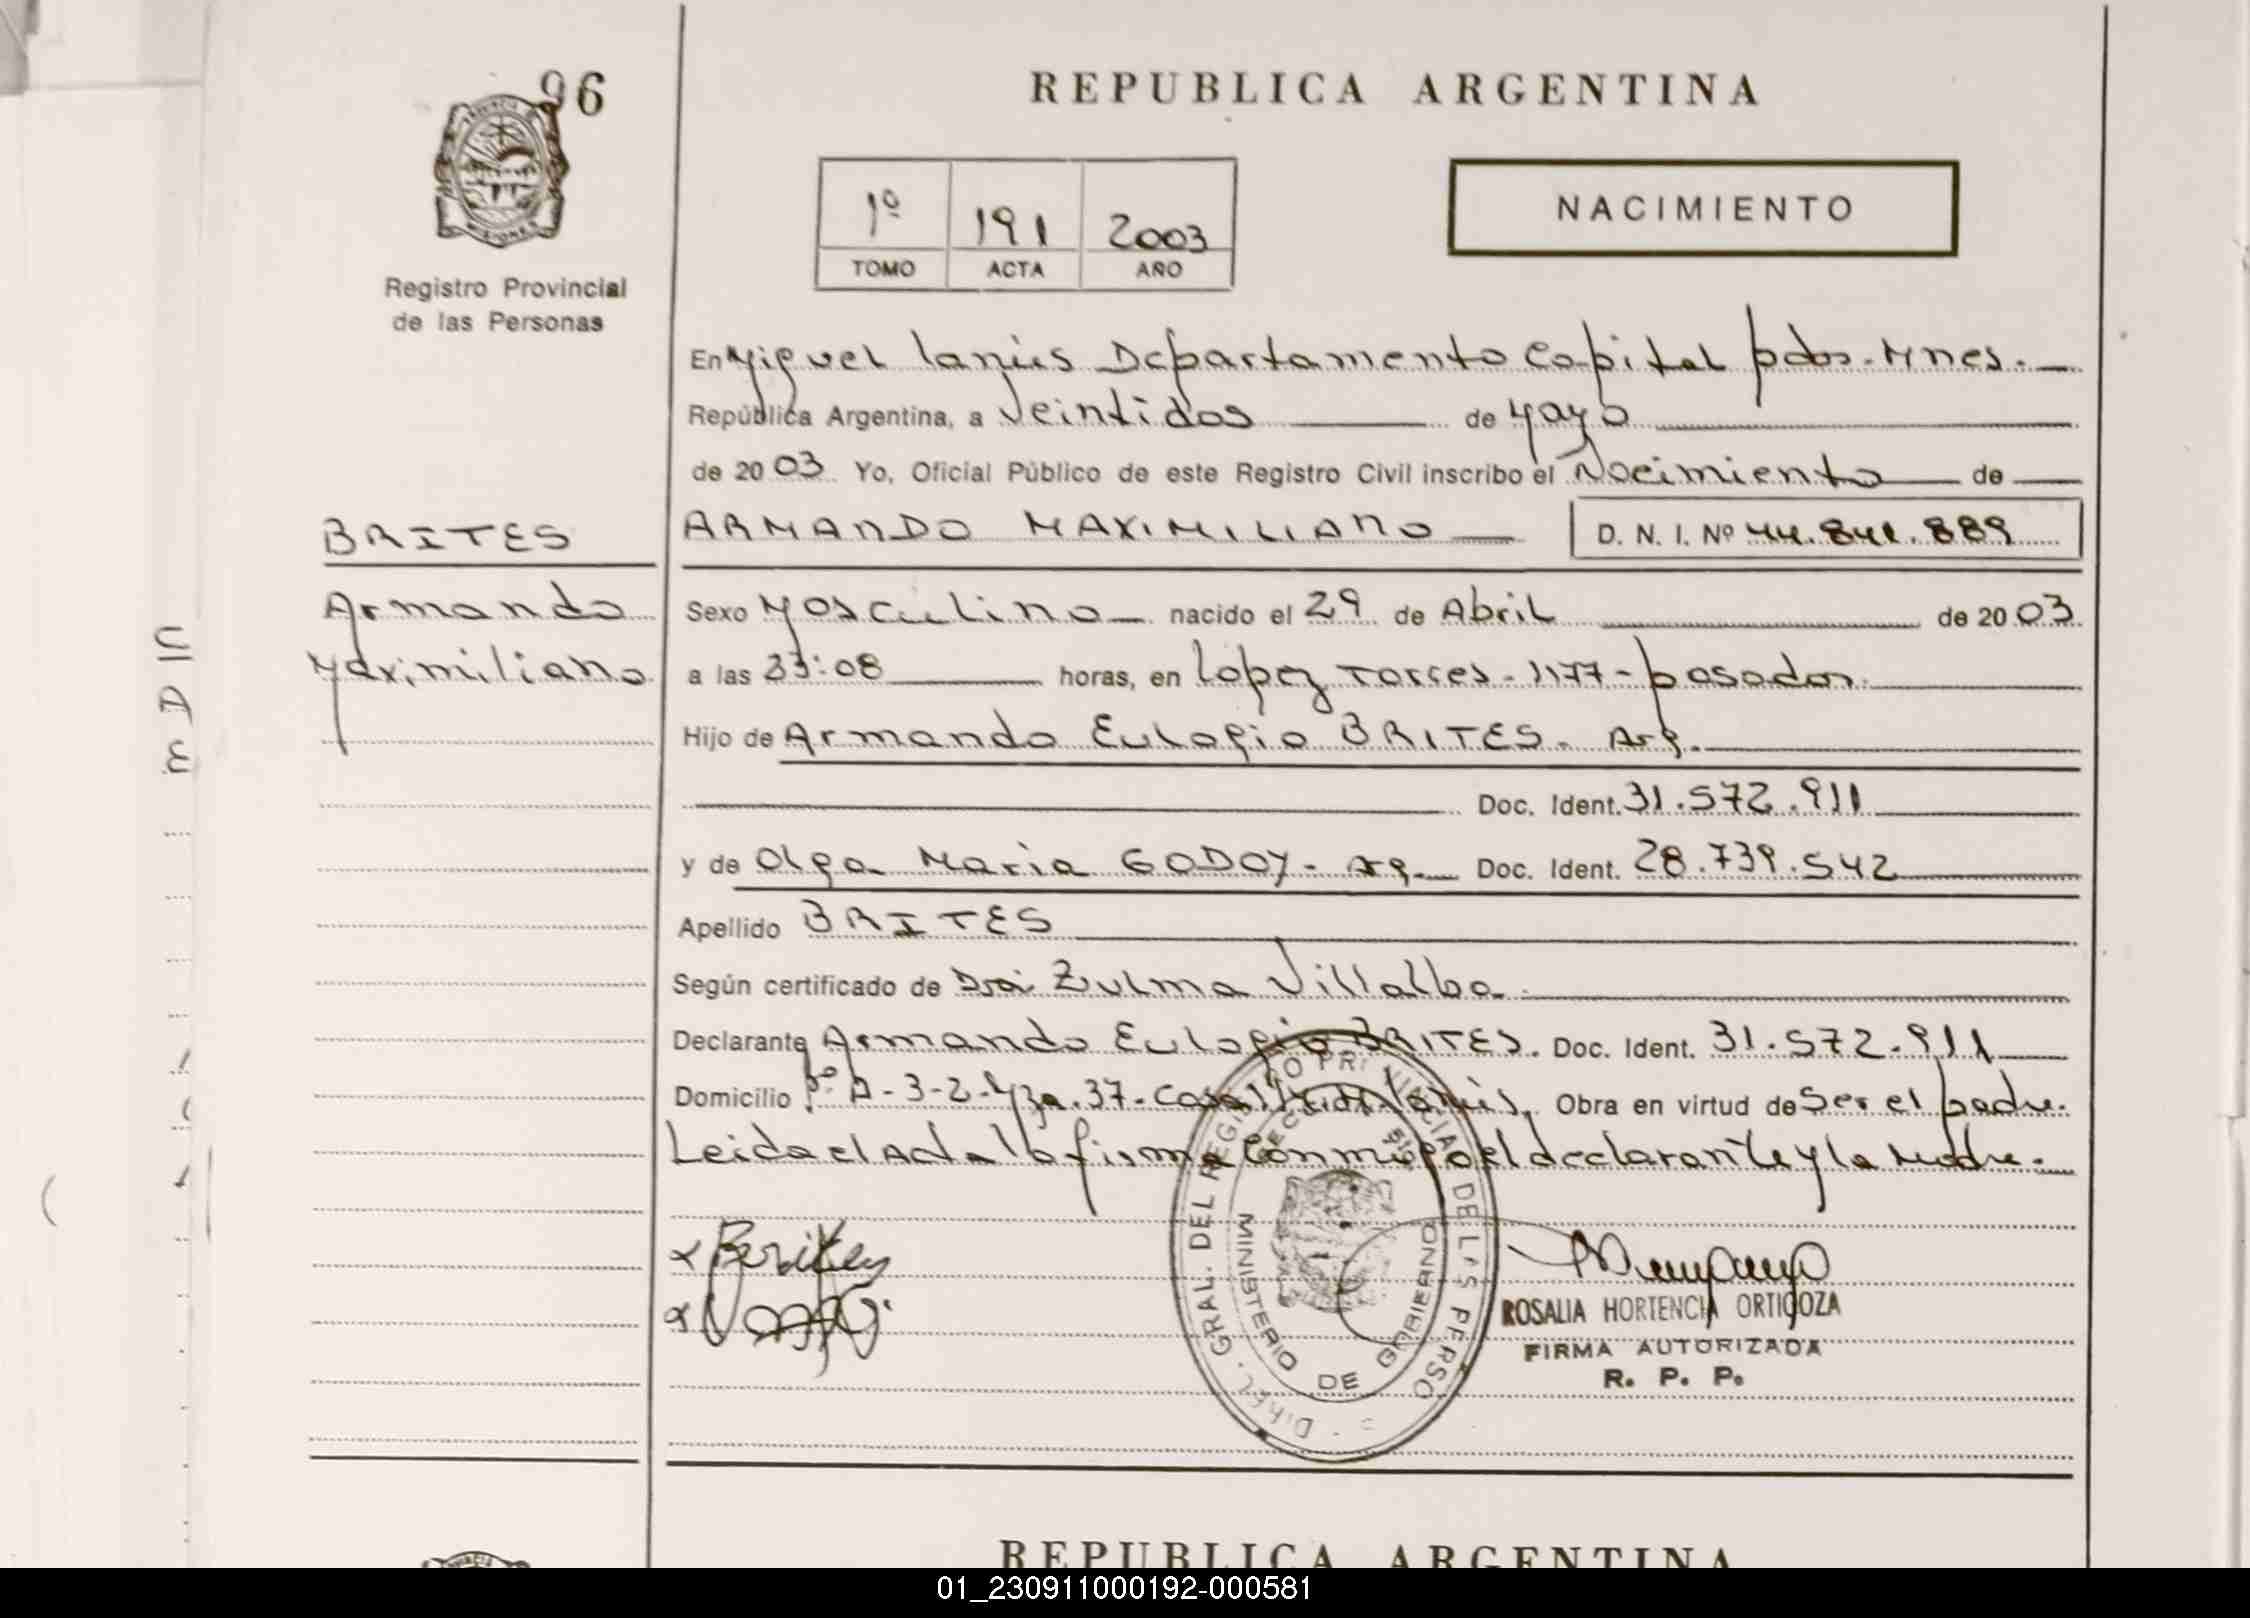 96
REPUBLICA ARGENTINA
1º 191 2003
TOMO ACTA AÑO
NACIMIENTO
Registro Provincial
de las Personas
En Miguel Lanús Departamento Capital pdas. Mnes.
República Argentina, a Veintidos de Mayo
de 2003 Yo, Oficial Público de este Registro Civil inscribo el Nacimiento de
BRITES
ARMANDO MAXIMILIANO D. N. I. Nº 44.841.889
Armando
Maximiliano
Sexo Masculino nacido el 29 de Abril de 2003
a las 23:08 horas, en Lopez Torres - 1177 - posadas.
Hijo de Armando Eulogio BRITES. Arg.
Doc. Ident. 31.572.911
y de Olga Maria GODOY - Arg. Doc. Ident. 28.739.542
Apellido BRITES
Según certificado de Dra. Zulma Villalba.
Declarante Armando Eulogio BRITES. Doc. Ident. 31.572.911
Domicilio A-3-2-Mza.37-Casa Lanús. Obra en virtud de Ser el padre.
Leida el Acta la firma conmigo el declarante y la Madre.
Brites
DIREC. GRAL. DEL REGISTRO PROVINCIAL DE LAS PERSO
MINISTERIO DE GOBIERNO
ROSALIA HORTENCIA ORTIGOZA
FIRMA AUTORIZADA
R. P. P.
REPUBLICA ARGENTINA
01_230911000192-000581